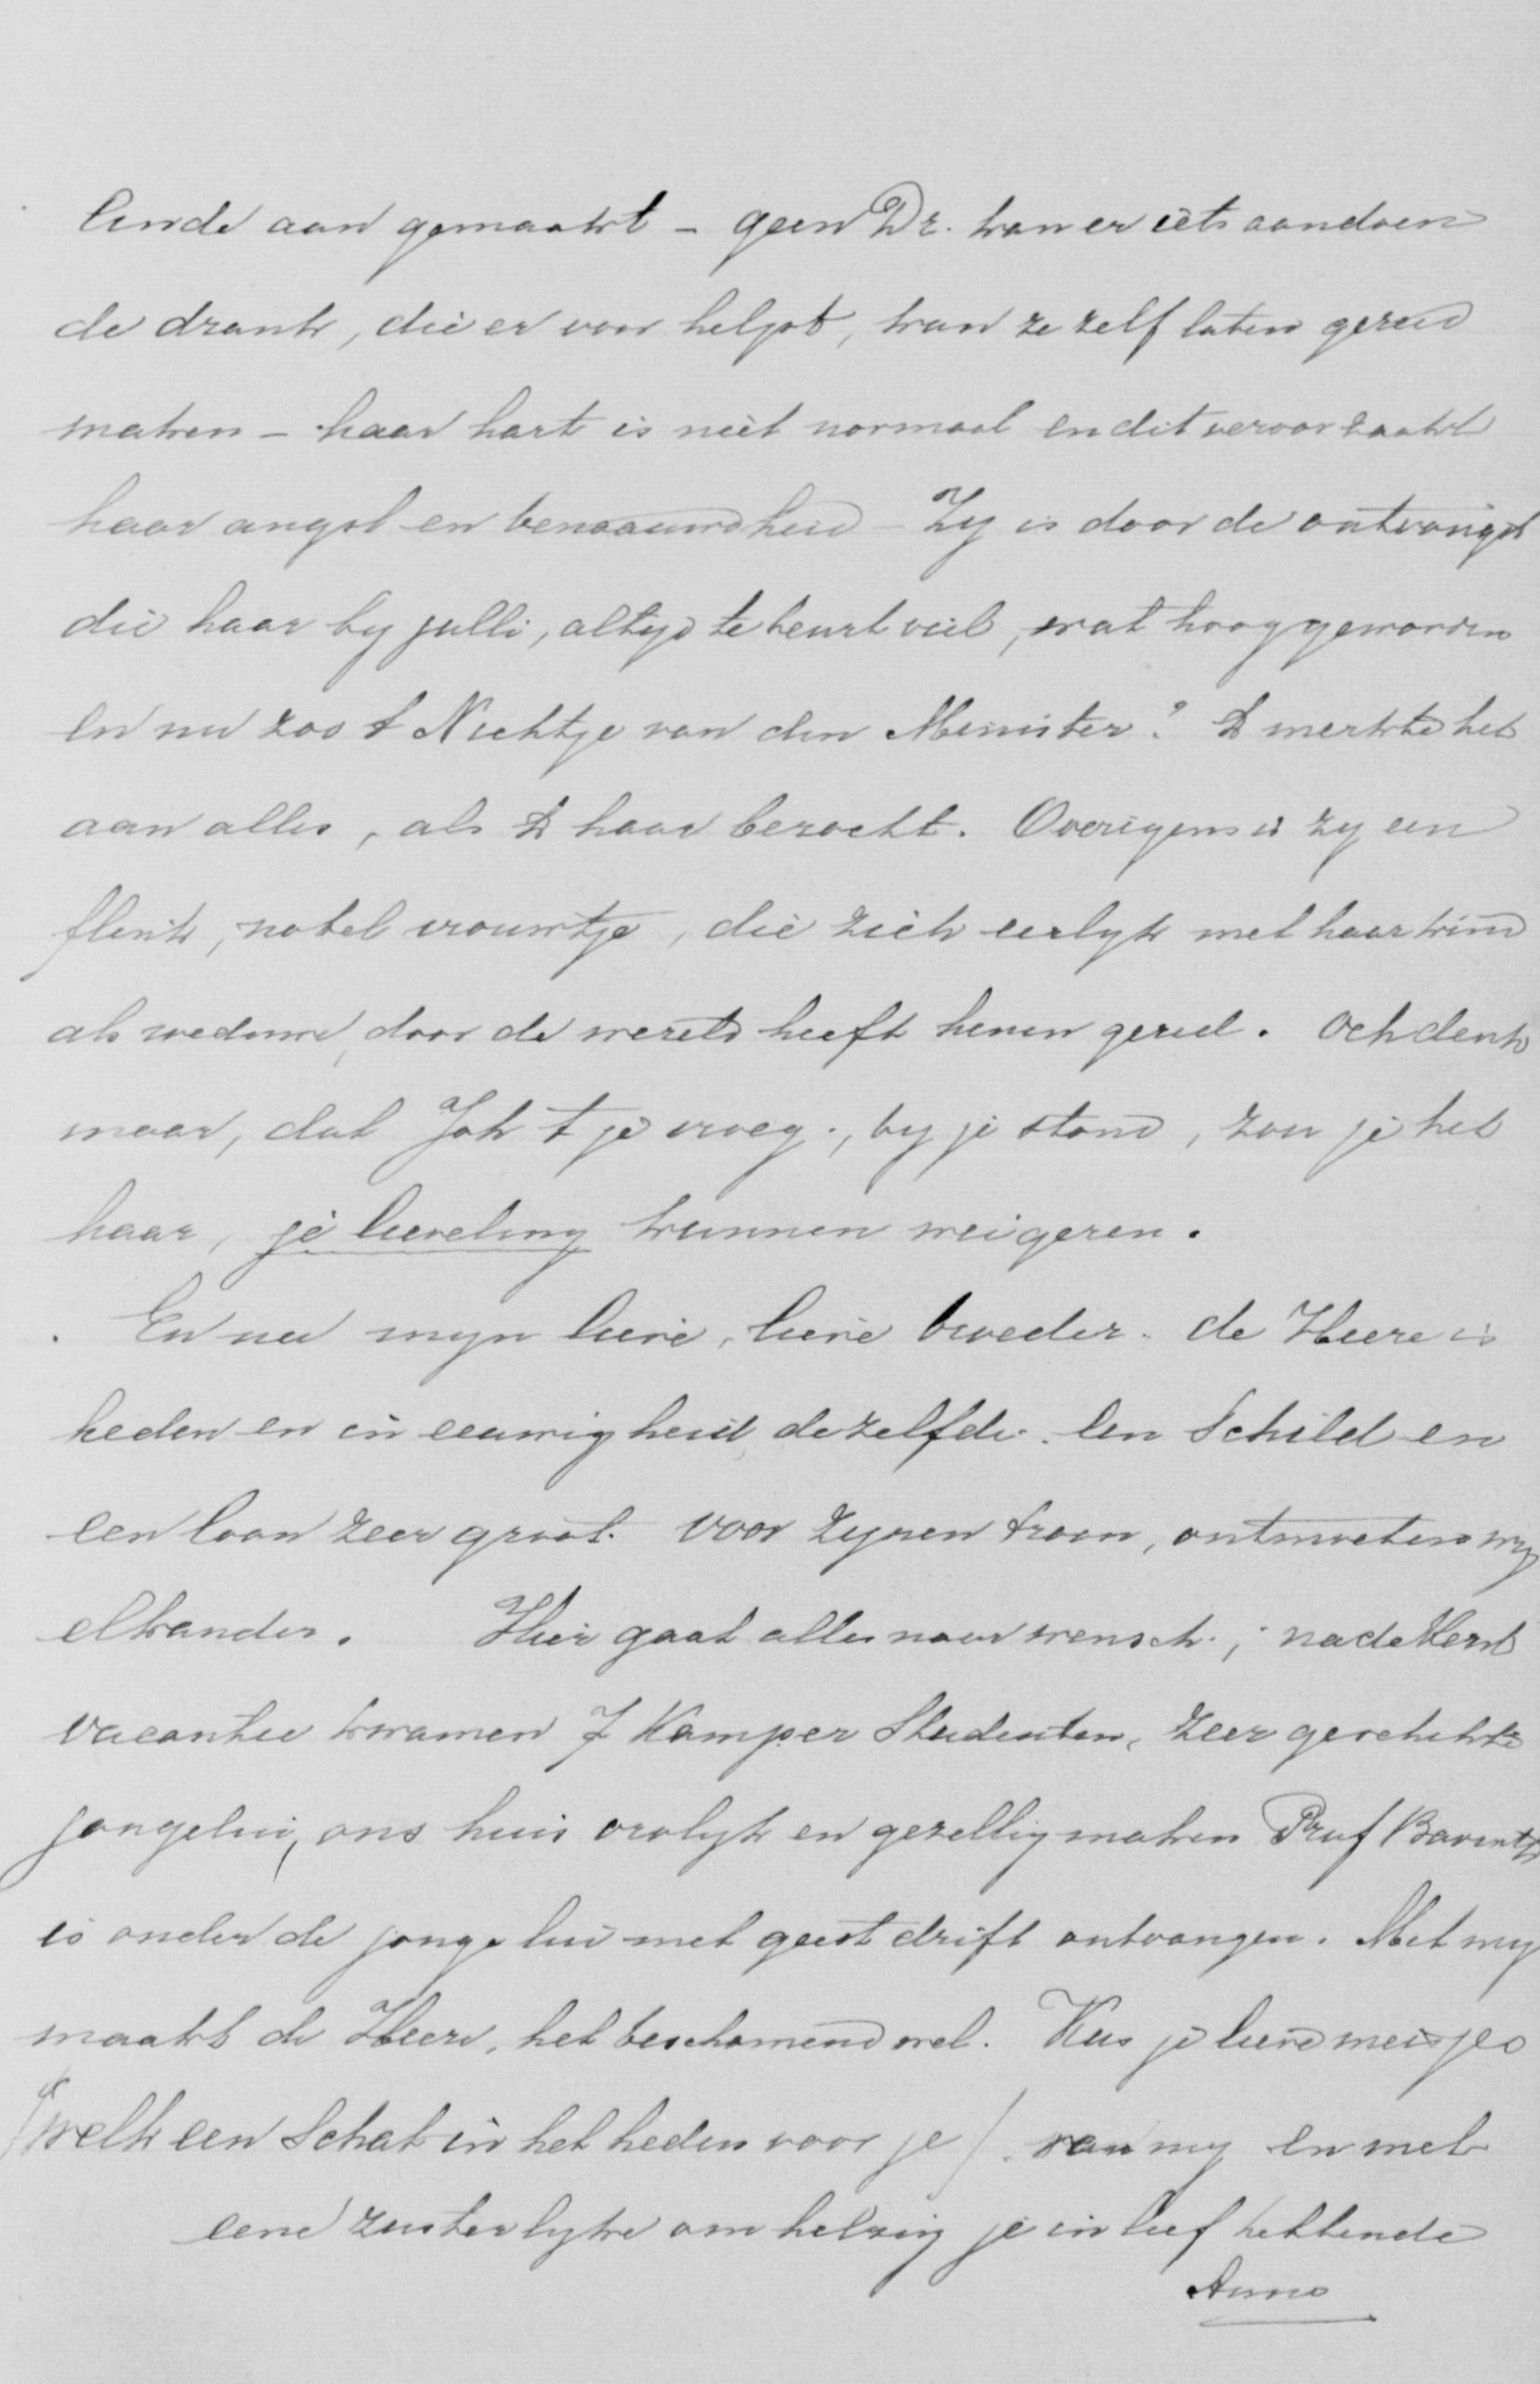 einde aan gemaakt – geen Dr. kan er iets aandoen
de drank, die er voor helpt, kan ze zelf laten gereed
maken – haar hart is niet normaal en dit veroorzaakt
haar angst en benaauwdheid – Zy is door de ontvangst
die haar by julli, altyd te beurt viel, wat hoog geworden
en nu zoo 't Nichtje van den Minister? Ik merkte het
aan alles, als Ik haar bezocht. Overigens is zy een
flink, nobel vrouwtje, die zich eerlyk met haar kind
als weduwe, door de wereld heeft henen gered. Och denk
maar, dat Joh 't je vroeg, by je stond, zou je het
haar, je lieveling kunnen weigeren.
En nu myn lieve, lieve broeder. de Heere is
heden en in eeuwigheid dezelfde. Een Schild en
een loon zeer groot. voor Zynen troon, ontmoeten wy
elkander. Hier gaat alles naar wensch; na de Kerst
vacantie kwamen 7 Kamper Studenten, zeer geschikte
jongelui, ons huis vrolyk en gezellig maken Prof Bavinck
is onder de jongelui met geestdrift ontvangen. Met my
maakt de Heere, het beschamend wel. Kus je lieve meisjes
(welk een Schat in het heden voor je) van my en met
eene zusterlyke omhelzing je in lief hebbende
Anna